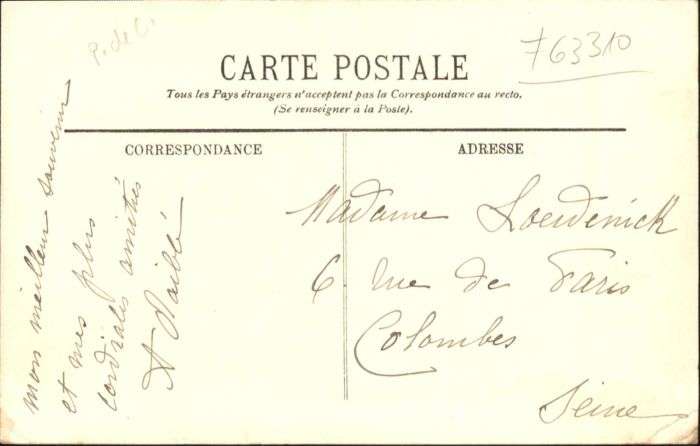 P. de C.
763310
CARTE POSTALE
Tous les Pays étrangers n'acceptent pas la Correspondance au recto.
(Se renseigner à la Poste).
CORRESPONDANCE
ADRESSE
mon meilleur souvenir
et mes plus
cordiales amitiés
A
Madame
6. Rue de Paris
Colombes
Seine